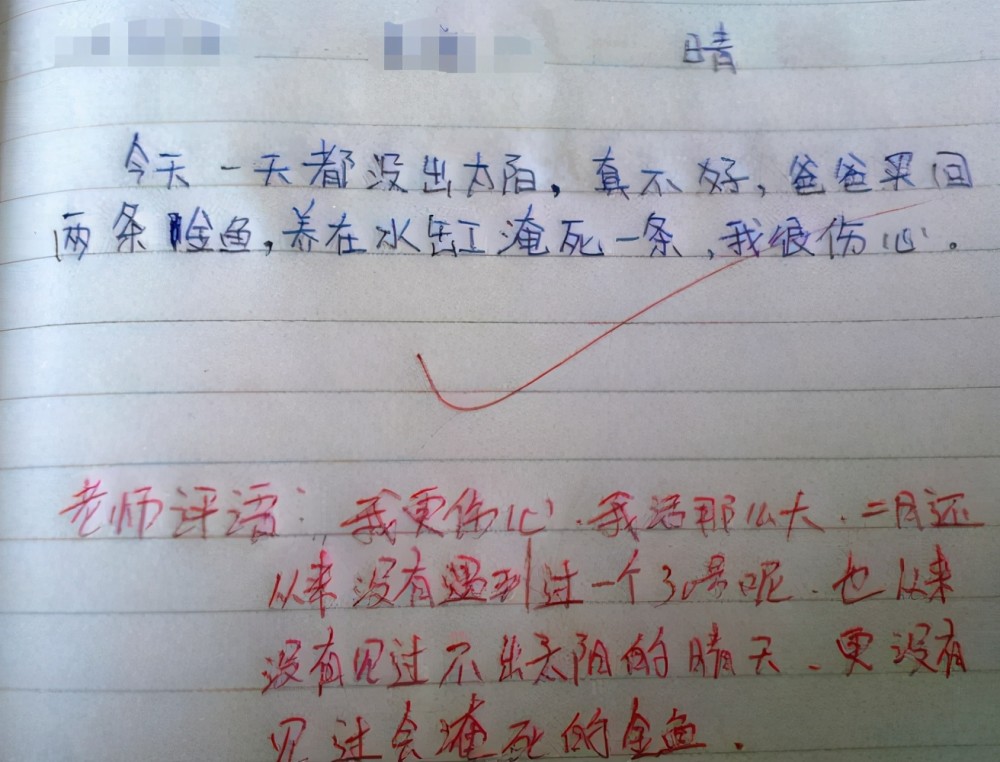 晴
今天一天都没出太阳，真不好，爸爸买回
两条金鱼，养在水缸淹死一条，我很伤心。
老师评语：我更伤心.我活那么大.二月还
从来没有遇到过一个30号呢.也从来
没有见过不出太阳的晴天、更没有
见过会淹死的金鱼.